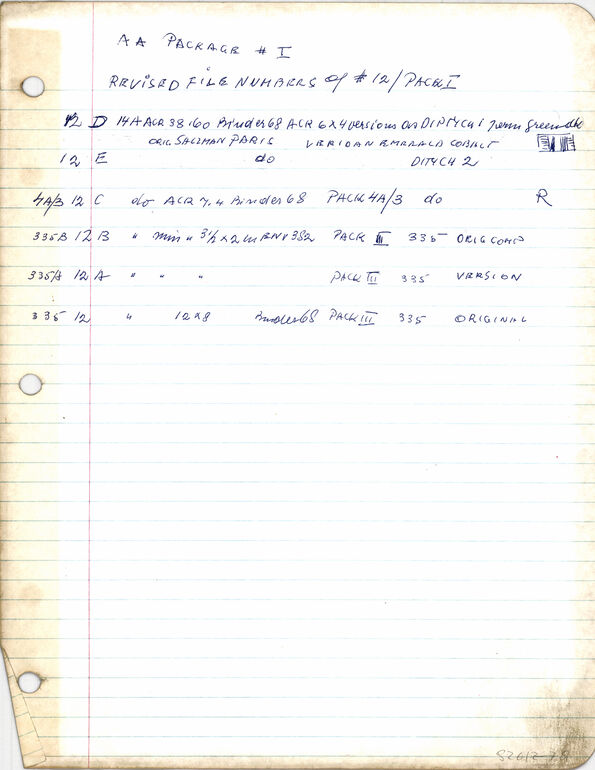 AA PACKAGE # I
REVISED FILE NUMBERS of # 12/PACK I
12 D 14A ACR 38 160 Binder 68 ACR 6 x 4 versions on DIPTYCH 1 perm green dk
ORIG. SALZMAN PARIS VERIDIAN EMERALD COBALT
12 E do DITYCH 2
4A/3 12 C do ACR 7, 4 Binder 68 PACK 4A/3 do R
335B 12 B " min " 3½ x 2 in ENV 382 PACK III 335 ORIG COMP
335/A 12 A " " " PACK III 335 VERSION
335 12 " 12 x 8 Binder 68 PACK III 335 ORIGINAL